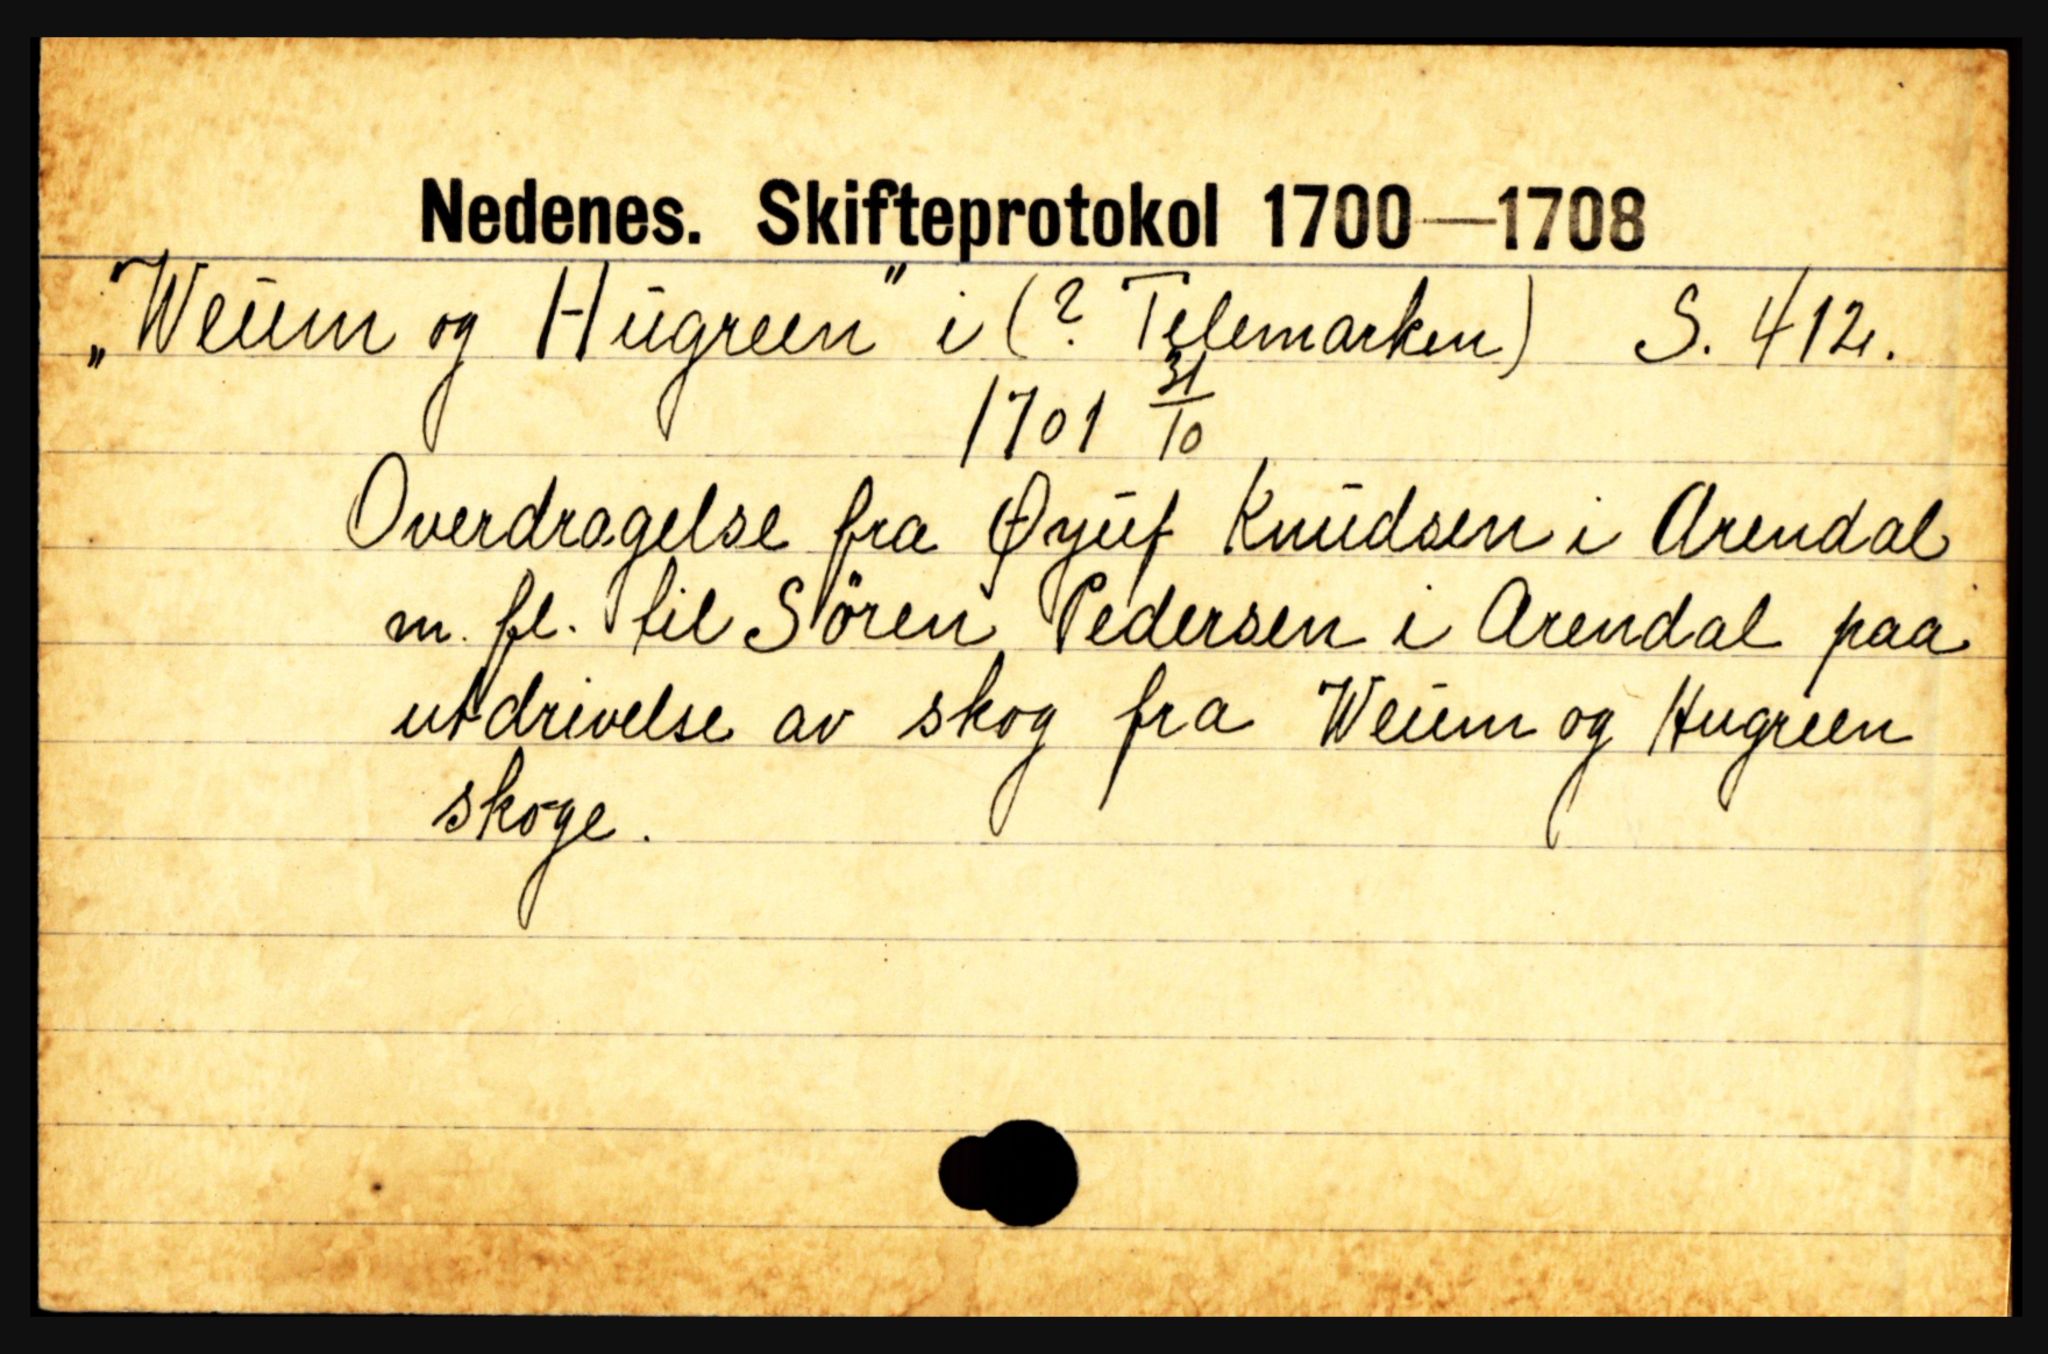 Nedenes. Skifteprotokol 1700—1708
„Weüm og Hügreen" i (? Telemarken) S. 412.
1701 31/10
Overdragelse fra Øyüf Knüdsen i Arendal
m. fl. til Sören Pedersen i Arendal paa
utdrivelse av skog fra Weüm og Hugreen
skoge.